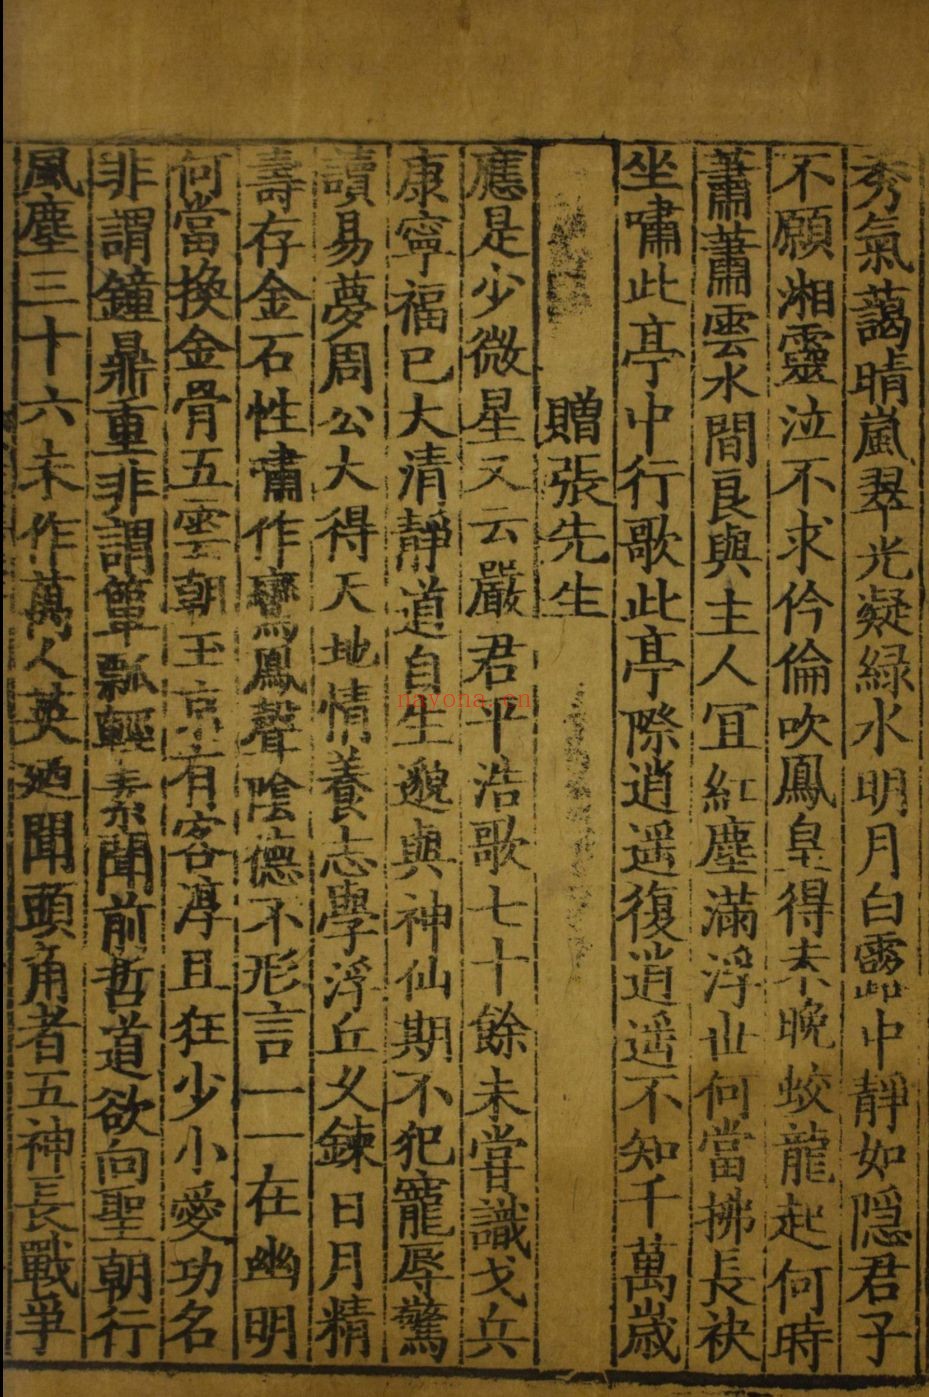 秀氣藹晴嵐翠光凝綠水明月白露中靜如隱君子
不願湘靈泣不求伶倫吹鳳皇得未晚蛟龍起何時
蕭蕭雲水間良與主人宜紅塵滿浮世何當拂長袂
坐嘯此亭中行歌此亭際逍遥復逍遥不知千萬歲
贈張先生
應是少微星又云嚴君平浩歌七十餘未嘗識戈兵
康寧福已大清靜道自生邈與神仙期不犯寵辱驚
讀易夢周公大得天地情養志學浮丘久鍊日月精
壽存金石性嘯作鸞鳳聲陰德不形言一一在幽明
何當換金骨五雲朝玉京有客淳且狂少小愛功名
非謂鐘鼎重非謂簞瓢輕素聞前哲道欲向聖朝行
風塵三十六未作萬人英廼聞頭角者五神長戰爭
nayona.cn